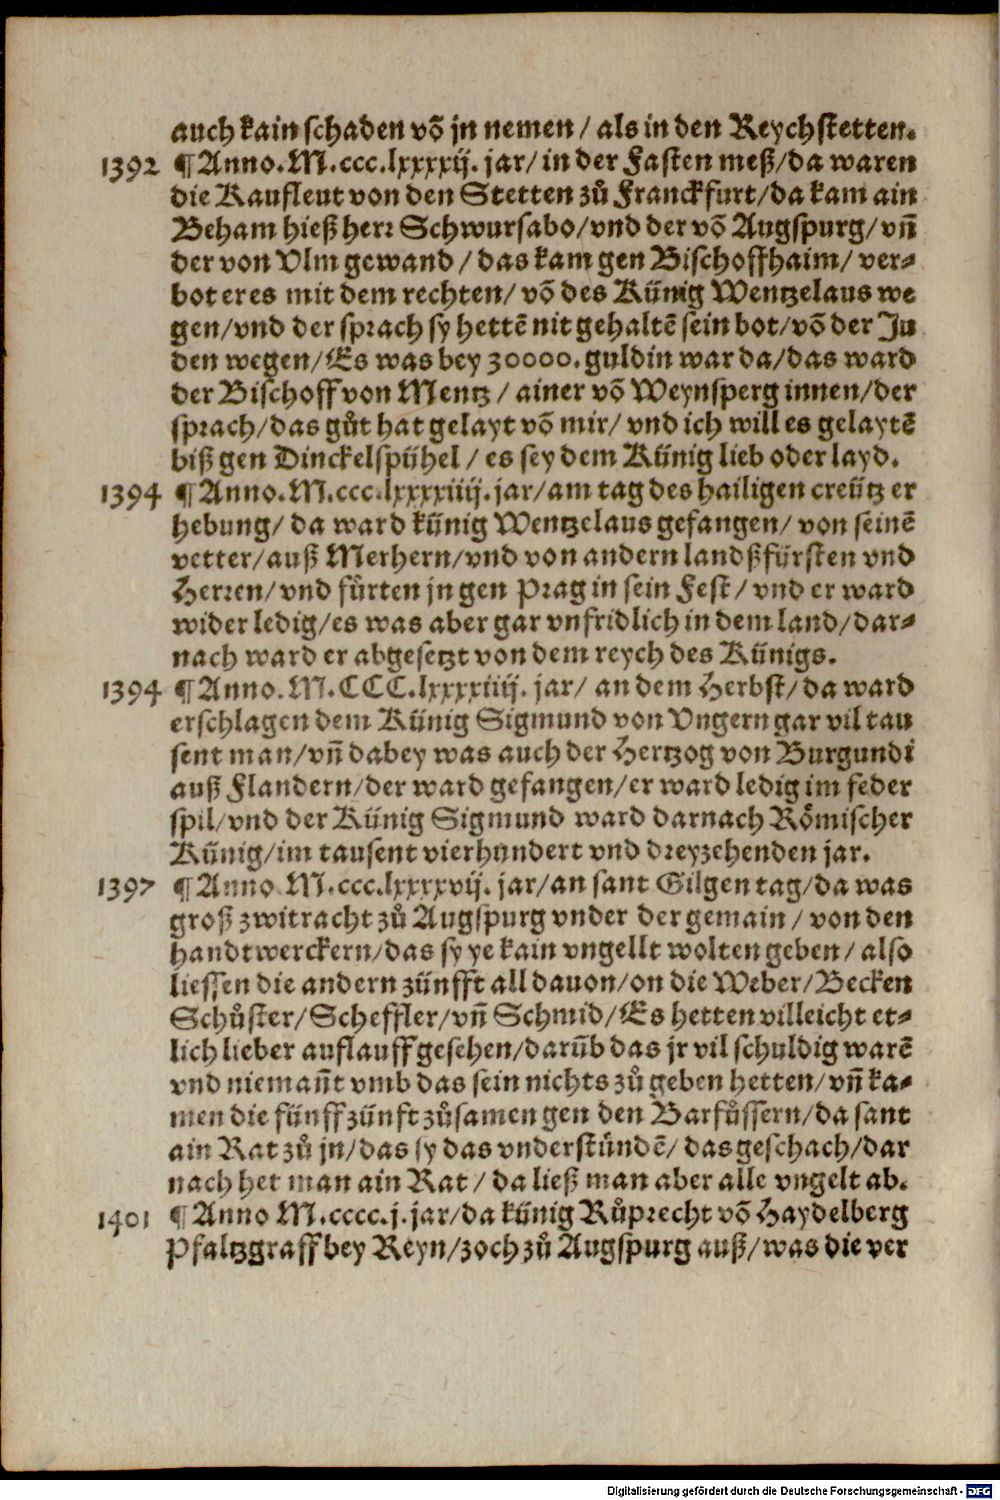 auch kain schaden võ jn nemen / als in den Reychstetten.
1392 ¶ Anno. M. ccc. lxxxxij. jar/ in der Fasten meß/da waren
die Kaufleut von den Stetten zů Franckfurt/da kam ain
Beham hieß herr Schwursabo/vnd der võ Augspurg/ vñ
der von Vlm gewand / das kam gen Bischoffhaim/ ver-
bot er es mit dem rechten/ võ des Künig Wentzelaus we
gen/vnd der sprach sy hettẽ nit gehaltẽ sein bot/võ der Ju
den wegen/Es was bey 30000. guldin war da/das ward
der Bischoff von Mentz / ainer võ Weynsperg innen/der
sprach/das gůt hat gelayt võ mir/ vnd ich will es gelaytẽ
biß gen Dinckelspühel / es sey dem Künig lieb oder layd.
1394 ¶ Anno. M. ccc. lxxxxiiij. jar/am tag des hailigen creütz er
hebung/ da ward künig Wentzelaus gefangen/ von seinẽ
vetter/auß Merhern/vnd von andern landßfürsten vnd
Herren/vnd fůrten jn gen Prag in sein Fest/ vnd er ward
wider ledig/es was aber gar vnfridlich in dem land/dar-
nach ward er abgesetzt von dem reych des Künigs.
1394 ¶ Anno. M. CCC. lxxxxiiij. jar/ an dem Herbst/da ward
erschlagen dem Künig Sigmund von Vngern gar vil tau
sent man/vñ dabey was auch der Hertzog von Burgundi
auß Flandern/der ward gefangen/er ward ledig im feder
spil/vnd der Künig Sigmund ward darnach Römischer
Künig/im tausent vierhundert vnd dreyzehenden jar.
1397 ¶ Anno M. ccc. lxxxxvij. jar/an sant Gilgen tag/da was
groß zwitracht zů Augspurg vnder der gemain / von den
handtwerckern/das sy ye kain vngellt wolten geben/ also
liessen die andern zünfft all dauon/on die Weber/Becken
Schůster/Scheffler/vñ Schmid/Es hetten villeicht et-
lich lieber auflauff gesehen/darũb das jr vil schuldig warẽ
vnd niemañt vmb das sein nichts zů geben hetten/vñ ka-
men die fünff zünft zůsamen gen den Barfůssern/da sant
ain Rat zů jn/das sy das vnderstündẽ/ das geschach/dar
nach het man ain Rat / da ließ man aber alle vngelt ab.
1401 ¶ Anno M. cccc. j. jar/da künig Růprecht võ Haydelberg
Pfaltzgraff bey Reyn/zoch zů Augspurg auß/was die ver
Digitalisierung gefördert durch die Deutsche Forschungsgemeinschaft - DFG